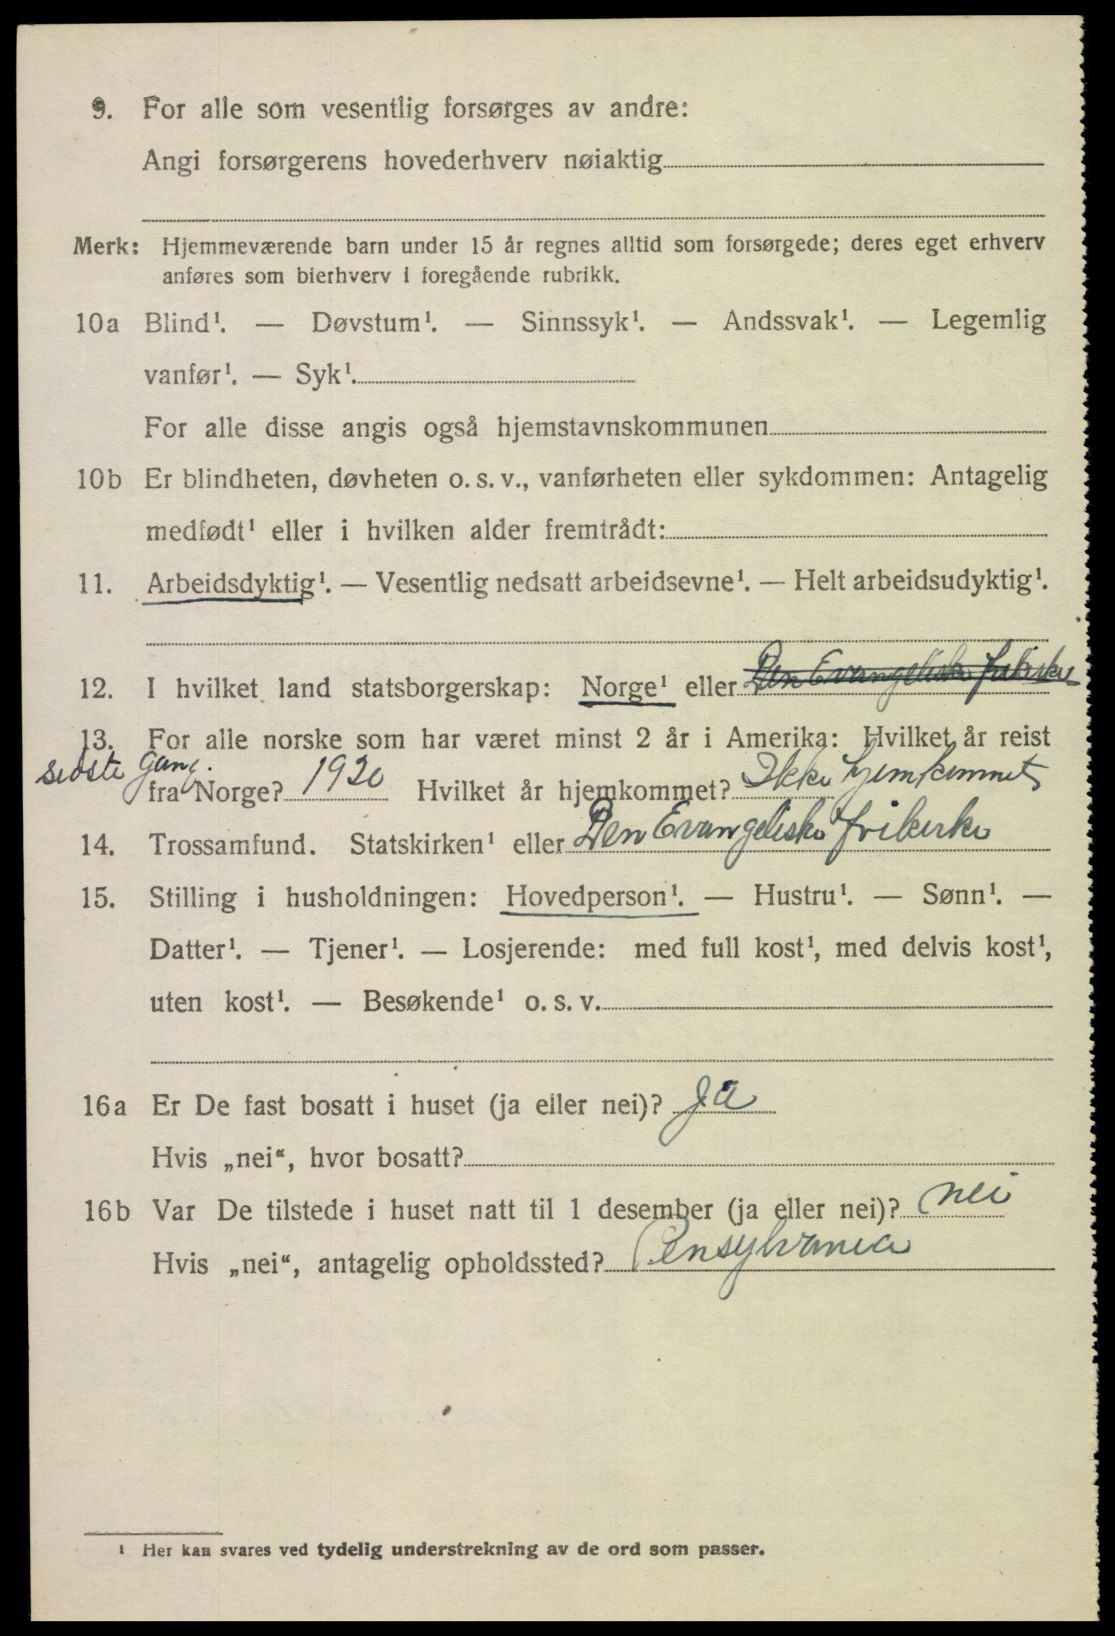 9. For alle som vesentlig forsørges av andre:
Angi forsørgerens hovederhverv nøiaktig
Merk: Hjemmeværende barn under 15 år regnes alltid som forsørgede; deres eget erhverv
anføres som bierhverv i foregående rubrikk.
10a Blind¹. — Døvstum¹. — Sinnssyk¹. — Andssvak¹. — Legemlig
vanfør¹. — Syk¹.
For alle disse angis også hjemstavnskommunen
10b Er blindheten, døvheten o. s. v., vanførheten eller sykdommen: Antagelig
medfødt¹ eller i hvilken alder fremtrådt:
11. Arbeidsdyktig¹. — Vesentlig nedsatt arbeidsevne¹. — Helt arbeidsudyktig¹.
12. I hvilket land statsborgerskap: Norge¹ eller Den Evangeliske frikirke
13. For alle norske som har været minst 2 år i Amerika: Hvilket år reist
sidste Gang.
fra Norge? 1920 Hvilket år hjemkommet? Ikke hjemkommet
14. Trossamfund. Statskirken¹ eller Den Evangeliske frikirke
15. Stilling i husholdningen: Hovedperson¹. — Hustru¹. — Sønn¹. —
Datter¹. — Tjener¹. — Losjerende: med full kost¹, med delvis kost¹,
uten kost¹. — Besøkende¹ o. s. v.
16a Er De fast bosatt i huset (ja eller nei)? Ja
Hvis „nei“, hvor bosatt?
16b Var De tilstede i huset natt til 1 desember (ja eller nei)? nei
Hvis „nei“, antagelig opholdssted? Pensylvania
¹ Her kan svares ved tydelig understrekning av de ord som passer.